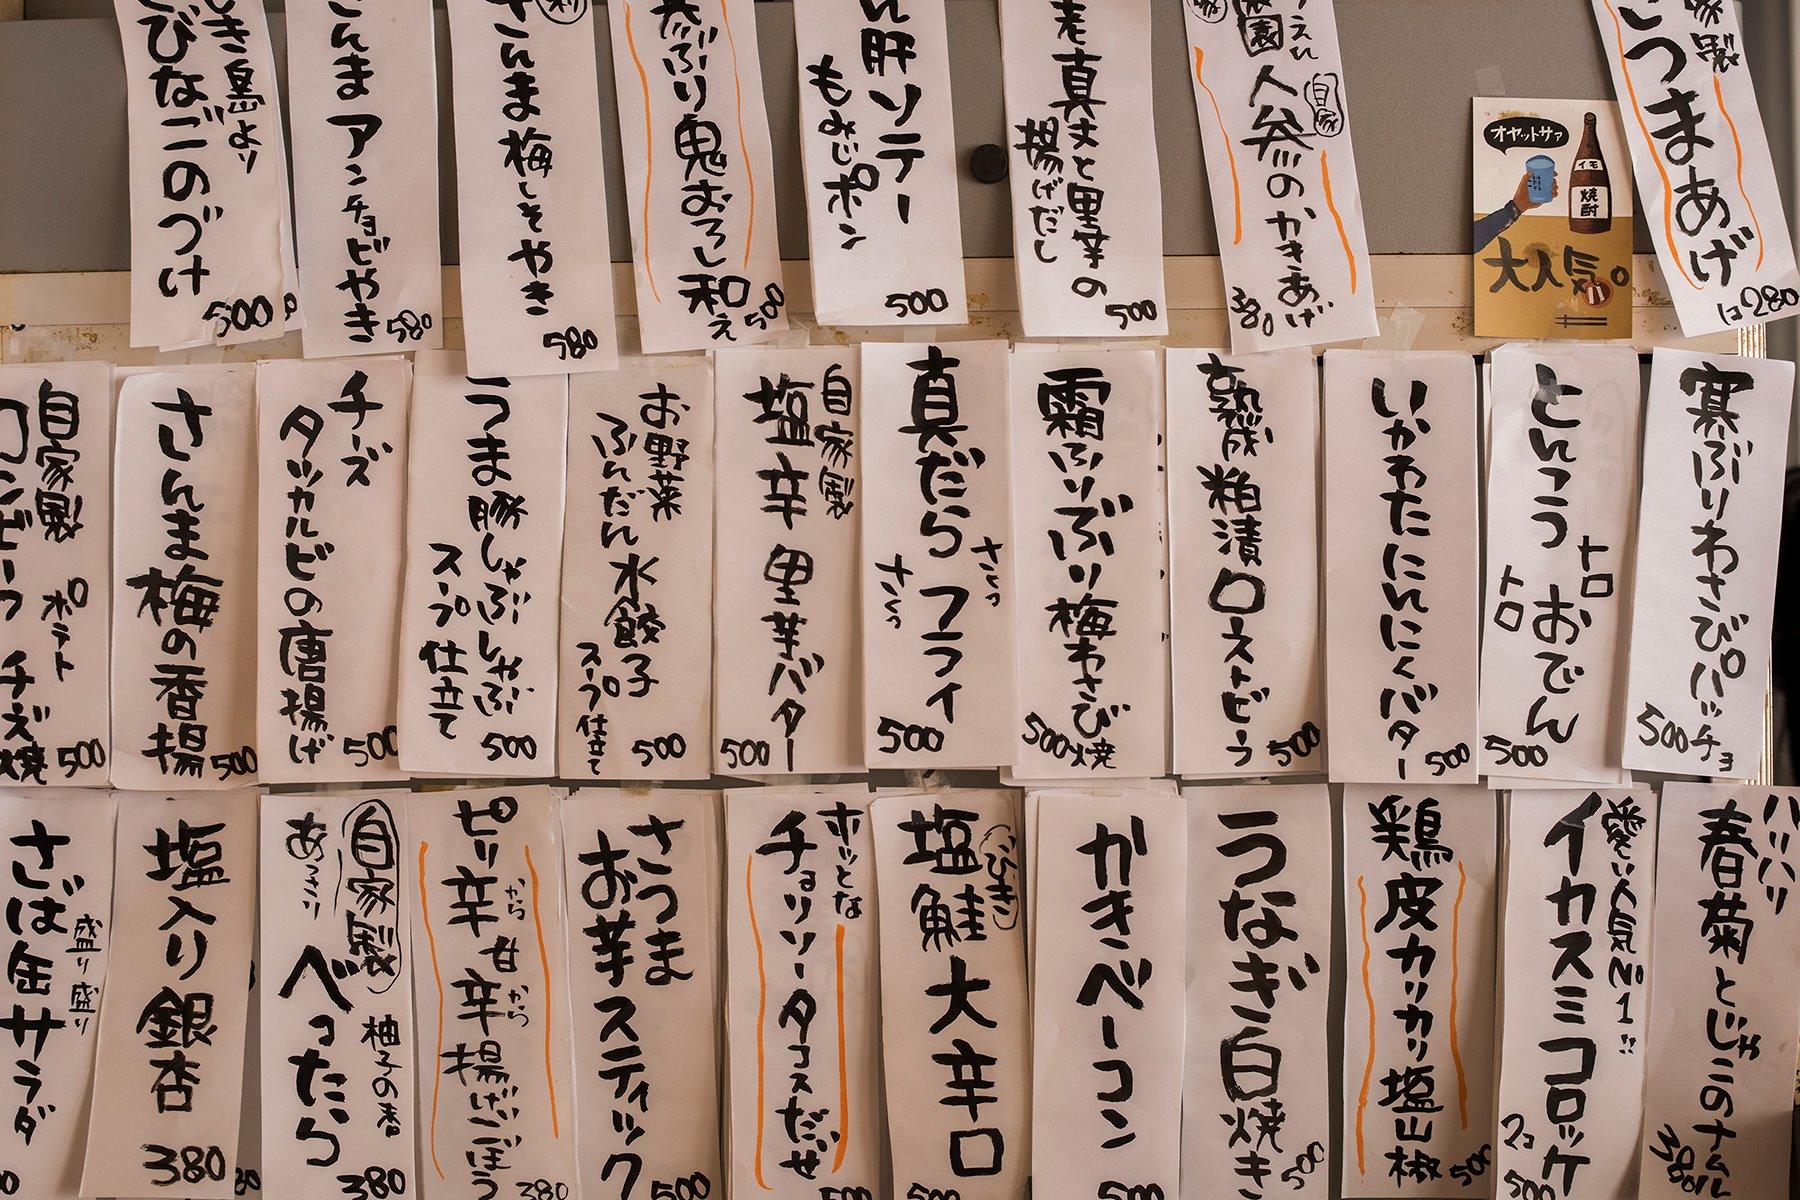 家製
つまあげ
1コ280
オヤットサァ
イモ
焼酎
大人気。
農園
自家
人参のかきあげ
380
老真丈と里芋の
揚げだし
500
ん肝ソテー
もみじポン
500
寒ぶり鬼おろし和え
500
さんま梅しそやき
580
さんまアンチョビやき
580
き鳥より
びなごのづけ
500
寒ぶりわさびパッチョ
500
とんこつおでん
トロ
トロ
500
いかわたにんにくバター
500
熟成粕漬ローストビーフ
500
霜ふりぶり梅わさび焼
500
真だらフライ
さくっ
さくっ
500
自家製
塩辛里芋バター
500
お野菜
ふんだん水餃子
スープ仕立て
500
うま豚しゃぶしゃぶ
スープ仕立て
500
チーズ
タッカルビの唐揚げ
500
さんま梅の香揚
500
自家製
コンビーフ
ポテト
チーズ焼
500
ハリハリ
春菊とじゃこのナムル
380
愛い人気No1!!
イカスミコロッケ
2コ
500
鶏皮カリカリ塩山椒
500
うなぎ白焼き
500
かきベーコン
500
こびき
塩鮭大辛口
500
ホッとな
チョリソータコスだぜ
500
さつま
お芋スティック
500
ピリ辛
から
甘辛
から
揚げごぼう
380
自家製
あっさり
べったら
柚子の香
380
塩入り銀杏
380
さば缶サラダ
盛り盛り